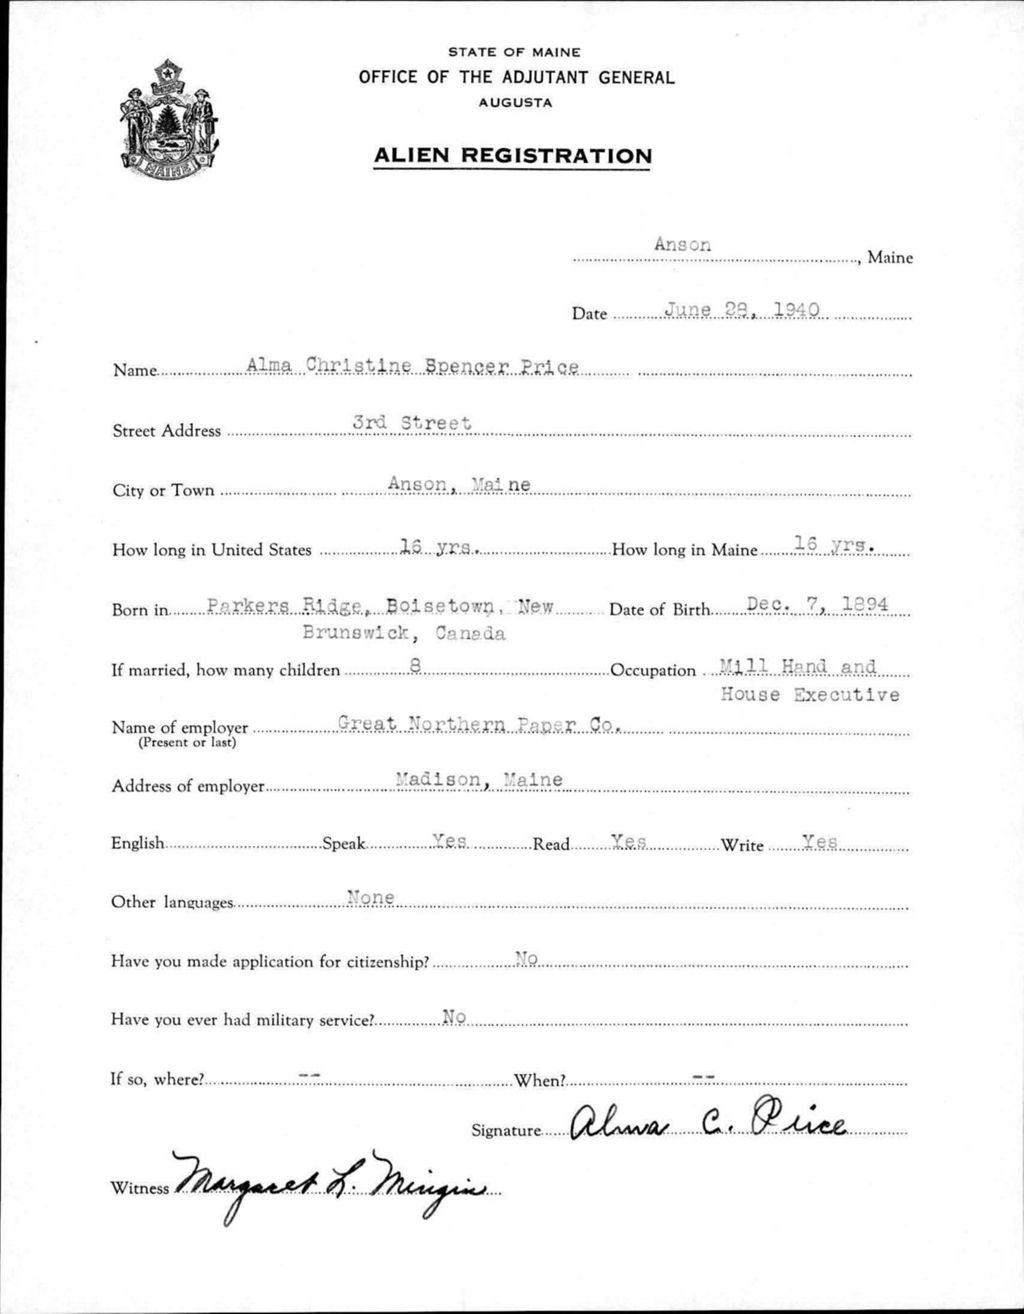 STATE OF MAINE
OFFICE OF THE ADJUTANT GENERAL
AUGUSTA
ALIEN REGISTRATION
MAINE
Anson, Maine
Date June 28, 1940
Name Alma Christine Spencer Price
Street Address 3rd Street
City or Town Anson, Maine
How long in United States 16 yrs. How long in Maine 16 yrs.
Born in Parkers Ridge, Boisetown, New Date of Birth Dec. 7, 1894
Brunswick, Canada
If married, how many children 8 Occupation Mill Hand and
House Executive
Name of employer Great Northern Paper Co.
(Present or last)
Address of employer Madison, Maine
English Speak Yes Read Yes Write Yes
Other languages None
Have you made application for citizenship? No
Have you ever had military service? No
If so, where? -- When? --
Signature Alma C. Price
Witness Margaret L.